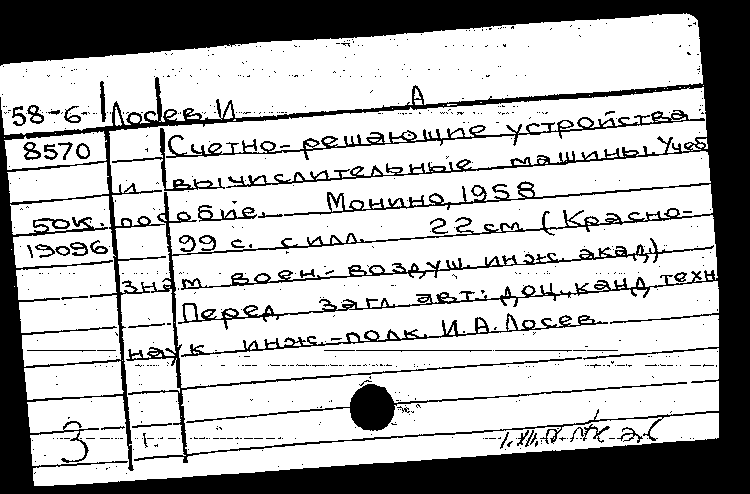 58-6 Лосев, И А
8570 Счетно-решающие устройства
и вычислительные машины. Учеб
50к. пособие. Монино, 1958
19096 99 с. с илл. 22 см (Красно-
знам воен.-воздуш. инж. акад).
Перед загл. авт.: доц., канд. техн
наук инж.-полк. И. А. Лосев
3 1.